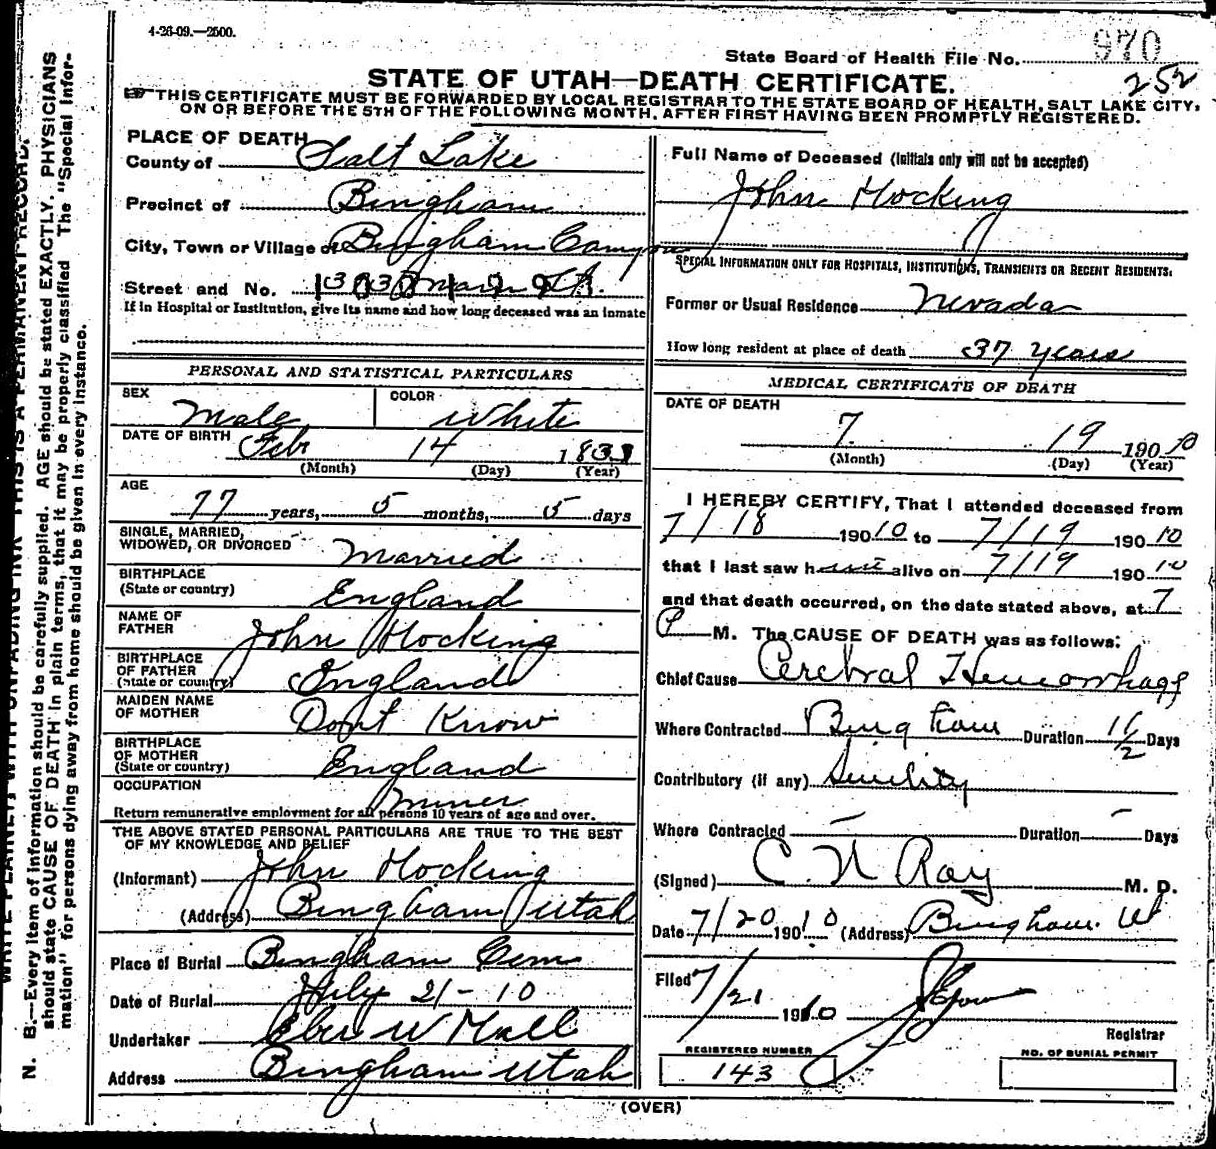 4-26-09.—2500.
State Board of Health File No. 970
252
STATE OF UTAH—DEATH CERTIFICATE.
THIS CERTIFICATE MUST BE FORWARDED BY LOCAL REGISTRAR TO THE STATE BOARD OF HEALTH, SALT LAKE CITY,
ON OR BEFORE THE 5TH OF THE FOLLOWING MONTH, AFTER FIRST HAVING BEEN PROMPTLY REGISTERED.
PLACE OF DEATH
County of Salt Lake
Precinct of Bingham
City, Town or Village of Bingham Canyon
Street and No.
If in Hospital or Institution, give its name and how long deceased was an inmate
PERSONAL AND STATISTICAL PARTICULARS
SEX Male
COLOR White
DATE OF BIRTH Feb 14 1833
(Month) (Day) (Year)
AGE
77 years, 5 months, 5 days
SINGLE, MARRIED,
WIDOWED, OR DIVORCED Married
BIRTHPLACE
(State or country) England
NAME OF
FATHER John Hocking
BIRTHPLACE
OF FATHER
(State or country) England
MAIDEN NAME
OF MOTHER Dont Know
BIRTHPLACE
OF MOTHER
(State or country) England
OCCUPATION
Miner
Return remunerative employment for all persons 10 years of age and over.
THE ABOVE STATED PERSONAL PARTICULARS ARE TRUE TO THE BEST
OF MY KNOWLEDGE AND BELIEF
(Informant) John Hocking
(Address) Bingham Utah
Place of Burial Bingham Cem
Date of Burial July 21-10
Undertaker Eber W Hall
Address Bingham Utah
Full Name of Deceased (Initials only will not be accepted)
John Hocking
SPECIAL INFORMATION ONLY FOR HOSPITALS, INSTITUTIONS, TRANSIENTS OR RECENT RESIDENTS:
Former or Usual Residence Nevada
How long resident at place of death 37 years
MEDICAL CERTIFICATE OF DEATH
DATE OF DEATH
7 19 190 10
(Month) (Day) (Year)
I HEREBY CERTIFY, That I attended deceased from
7/18 190 10 to 7/19 190 10
that I last saw h alive on 7/19 190 10
and that death occurred, on the date stated above, at 7
P M. The CAUSE OF DEATH was as follows:
Chief Cause Cerebral Hemorrhage
Where Contracted Bingham Duration 1 1/2 Days
Contributory (if any) Senility
Where Contracted — Duration — Days
(Signed) C. N Ray M. D.
Date 7/20 1910 (Address) Bingham Ut
Filed 7/21 1910
Registrar
REGISTERED NUMBER
143
NO. OF BURIAL PERMIT
(OVER)
WRITE PLAINLY, WITH UNFADING INK—THIS IS A PERMANENT RECORD.
N. B.—Every item of information should be carefully supplied. AGE should be stated EXACTLY. PHYSICIANS
should state CAUSE OF DEATH in plain terms, that it may be properly classified The "Special Infor-
mation" for persons dying away from home should be given in every instance.